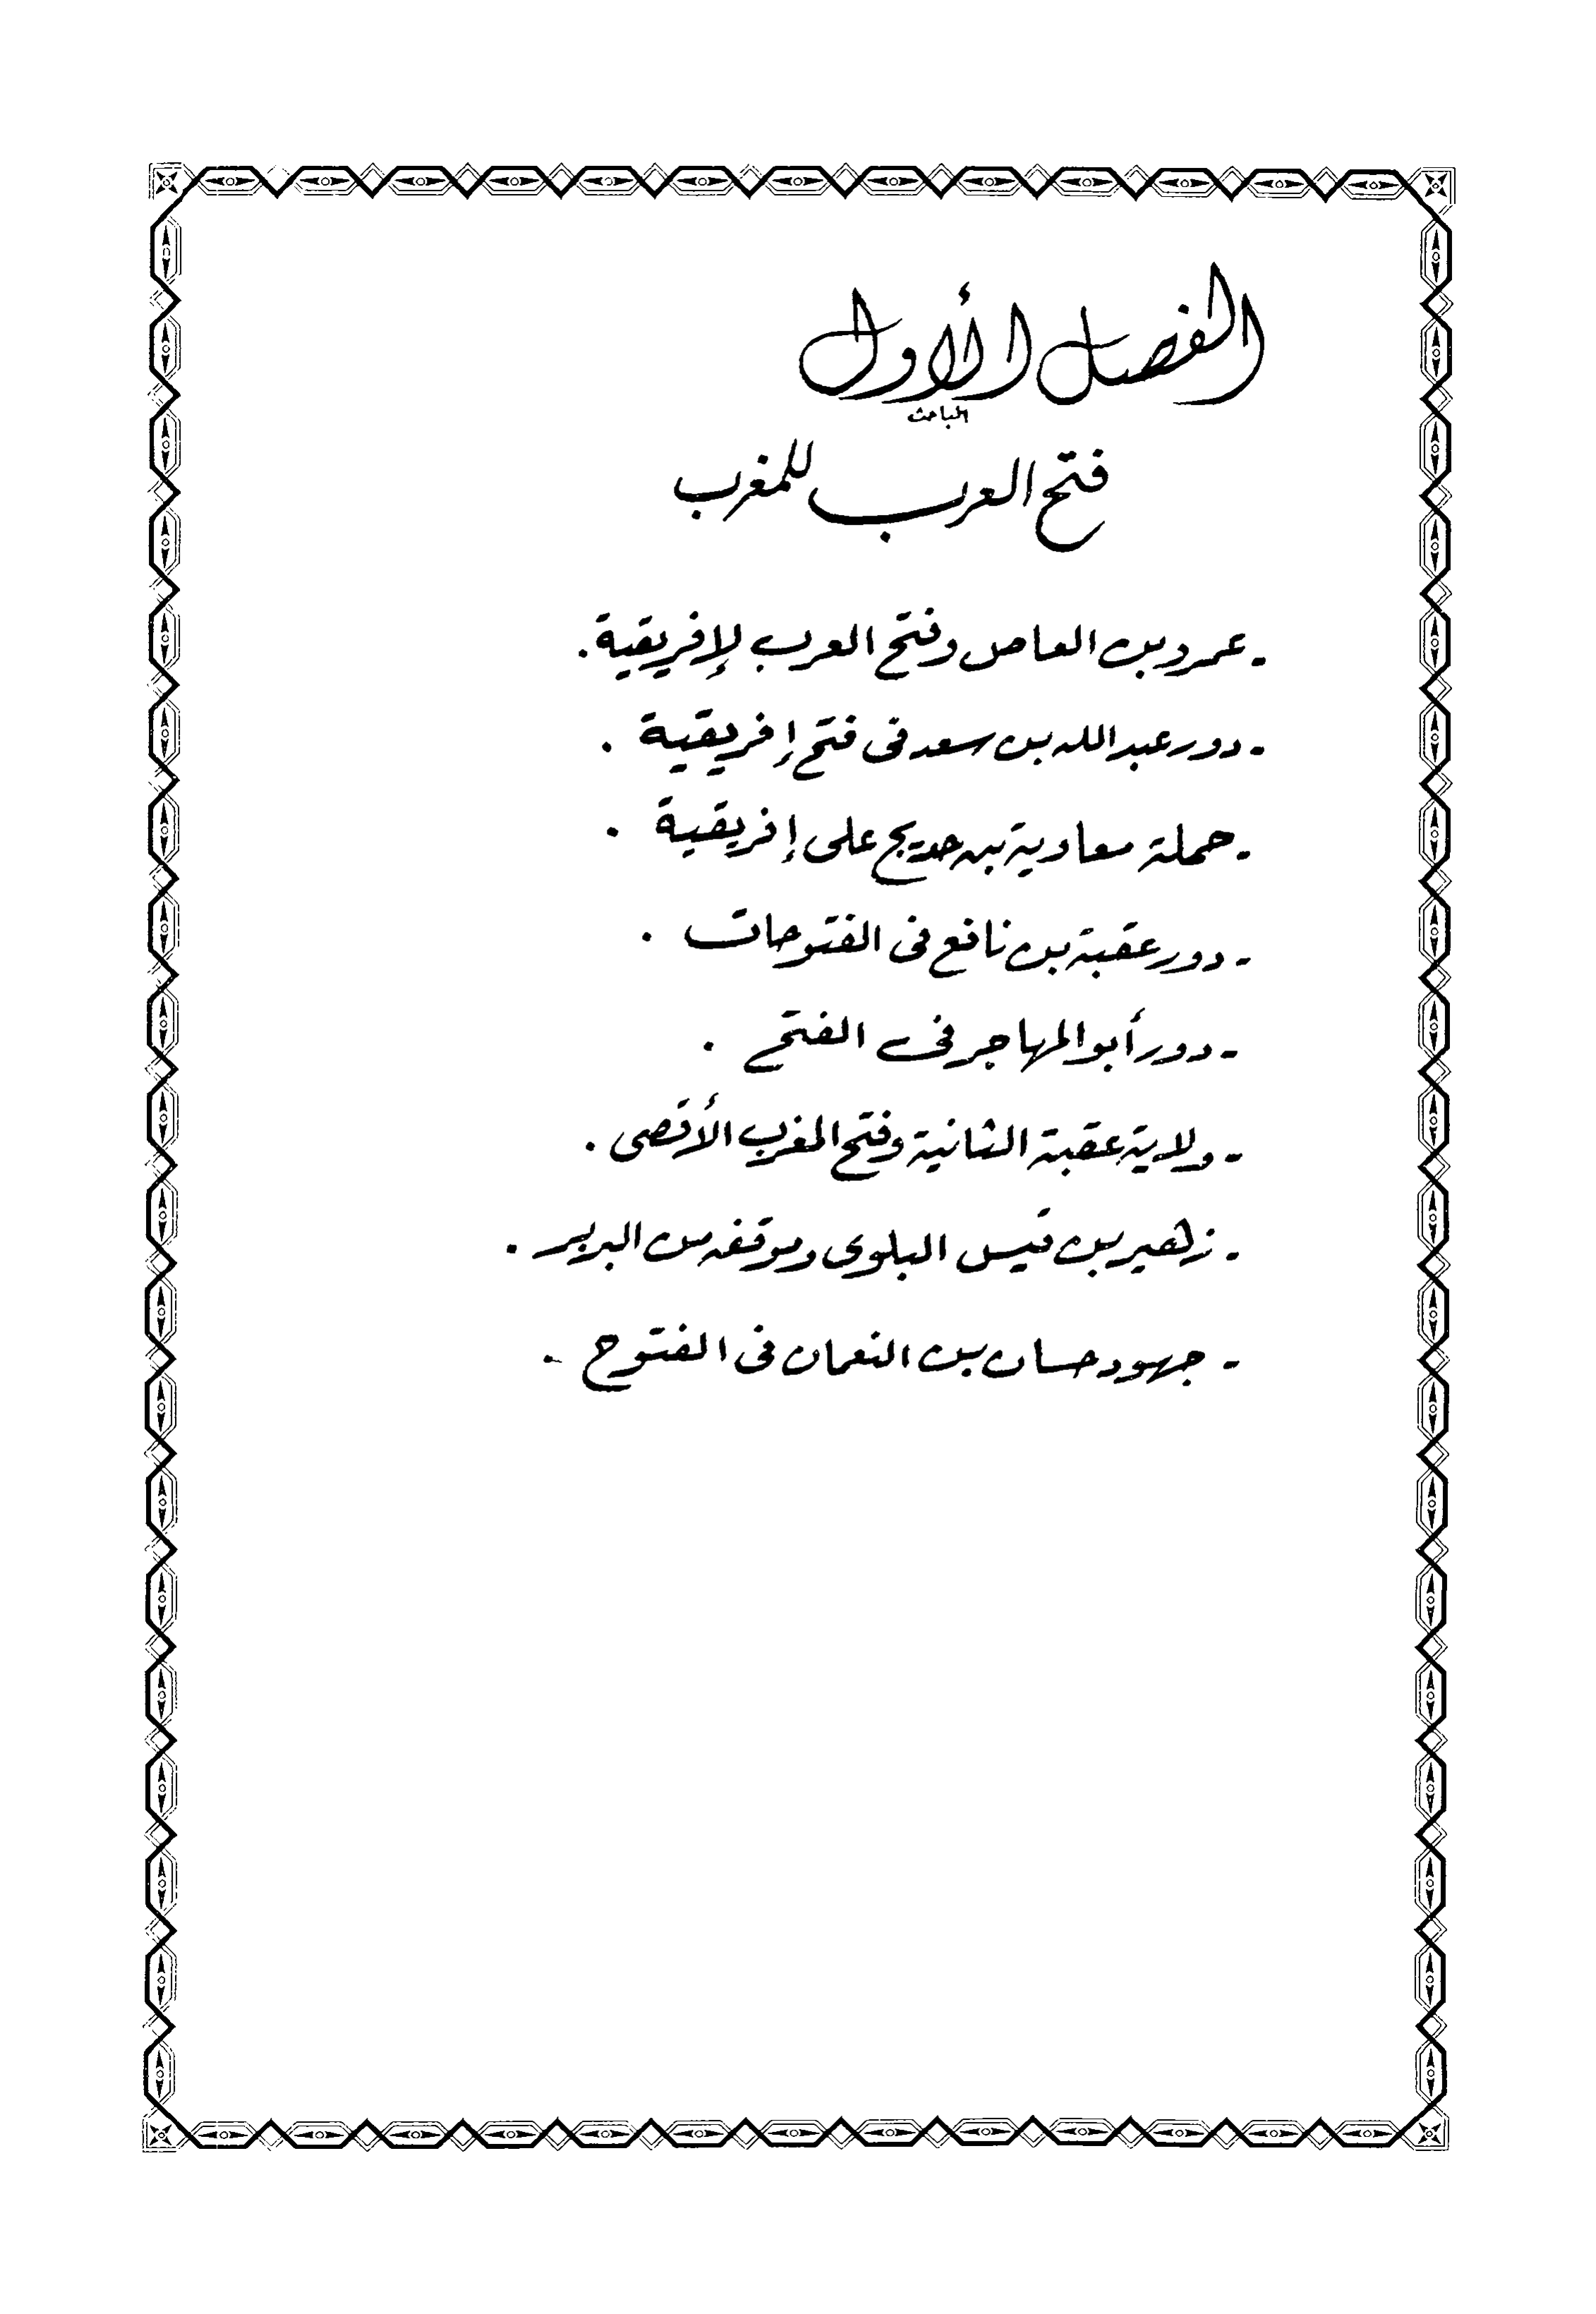 الفصل الأول
المباحث
فتح العرب للمغرب
- عمرو بن العاص وفتح العرب لإفريقية .
- دور عبد الله بن سعد فى فتح إفريقية .
- حملة معاوية بن حديج على إفريقية .
- دور عقبة بن نافع فى الفتوحات .
- دور أبو المهاجر فى الفتح .
- ولاية عقبة الثانية وفتح المغرب الأقصى .
- زهير بن قيس البلوى وموقفه من البربر .
- جهود حسان بن النعمان فى الفتوح .